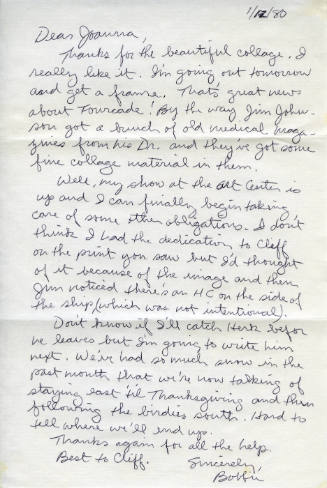 1/12/80
Dear Joanna,
Thanks for the beautiful collage. I
really like it. I'm going out tomorrow
and get a frame. That's great news
about Fourcade! By the way, Jim John-
son got a bunch of old medical maga-
zines from his Dr. and they've got some
fine collage material in them.
Well, my show at the Art Center is
up and I can finally begin taking
care of some other obligations. I don't
think I had the dedication to Cliff
on the print you saw but I'd thought
of it because of the image and then
Jim noticed there's an HC on the side of
the ship (which was not intentional).
Don't know if I'll catch Herk before
he leaves but I'm going to write him
next. We've had so much snow in the
past month that we're now talking of
staying east 'til Thanksgiving and then
following the birdies south. Hard to
tell where we'll end up.
Thanks again for all the help.
Best to Cliff.
Sincerely,
Bobbie